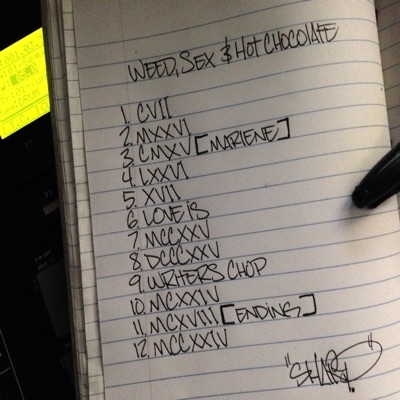 WEED, SEX & HOT CHOCOLATE
1. CVII
2. MXXVI
3. CMXV [MARIENE]
4. LXXVI
5. XVII
6. LOVE IS
7. MCCXXV
8. DCCCXXV
9. WRITERS CHOP
10. MCXXIV
11. MCXVIII [ENDING]
12. MCCXXIV